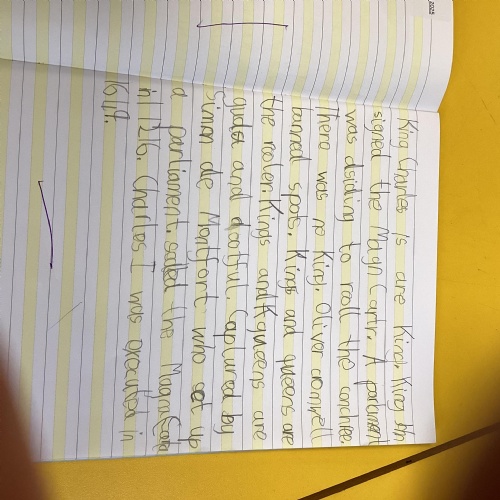 King Charles is are Kind. King Jhn
signed the Magn Cartr. A parament
was dsiding to roll the
There was no King. Oliver cromwell
banned spots. Kings and queens are
the rooler. Kings and queens are
gudst and dootful. Captured by
Simon de Montfort who set up
a parliament. saled the Magn Carta
in 1126. Charles I was executed in
1619.
2024